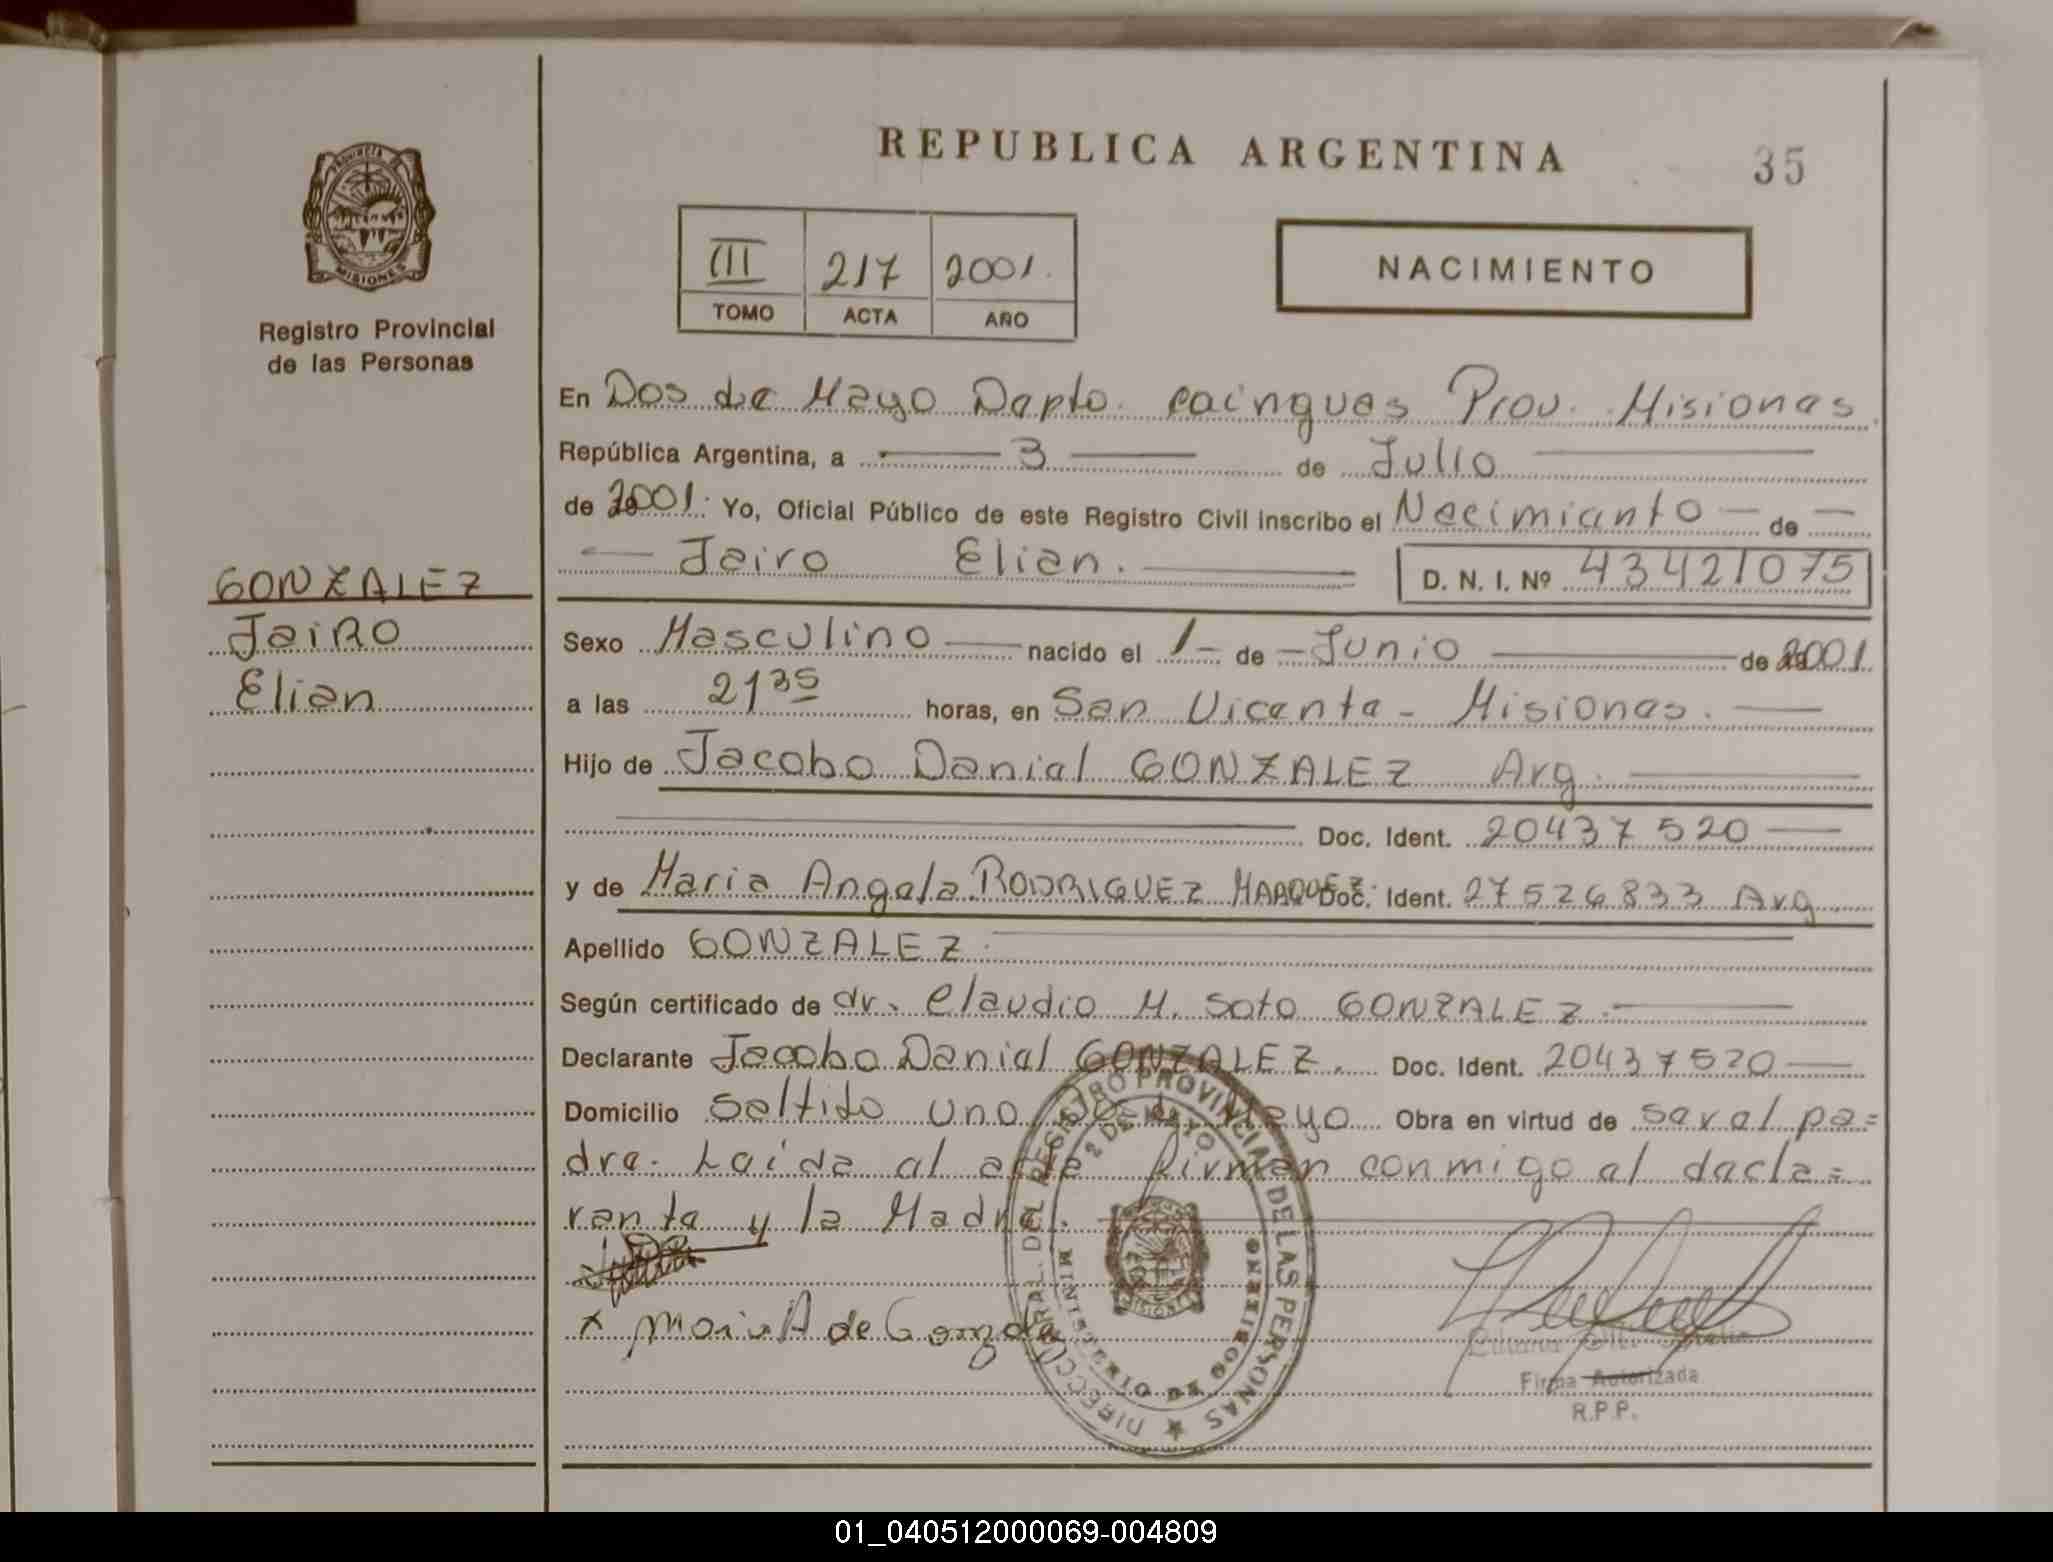 REPUBLICA ARGENTINA
35
PROVINCIA DE
MISIONES
Registro Provincial
de las Personas
III 217 2001.
TOMO ACTA AÑO
NACIMIENTO
En Dos de Mayo Depto. Cainguas Prov. Misiones.
República Argentina, a 3 de Julio
de 2001. Yo, Oficial Público de este Registro Civil inscribo el Necimiento de
Jairo Elian.
D. N. I. Nº 43421075
GONZALEZ
Jairo
Elian
Sexo Masculino nacido el 1- de Junio de 2001
a las 21 35 horas, en San Vicente - Misiones.
Hijo de Jacobo Daniel GONZALEZ Arg.
Doc. Ident. 20437520
y de Maria Angela RODRIGUEZ MARQUEZ. Doc. Ident. 27526833 Arg
Apellido GONZALEZ.
Según certificado de dr. Claudio M. Soto GONZALEZ.
Declarante Jacobo Daniel GONZALEZ. Doc. Ident. 20437520
Domicilio Saltito uno Dos de Mayo Obra en virtud de ser el pa=
dre. Leida el acta firman conmigo el decla=
rante y la Madre.
x Maria A de Gonzalez
DIRECC. GRAL. DEL REGISTRO PROVINCIAL DE LAS PERSONAS
2 DE MAYO
MINISTERIO DE GOBIERNO
MISIONES
Firma Autorizada
R.P.P.
01_040512000069-004809